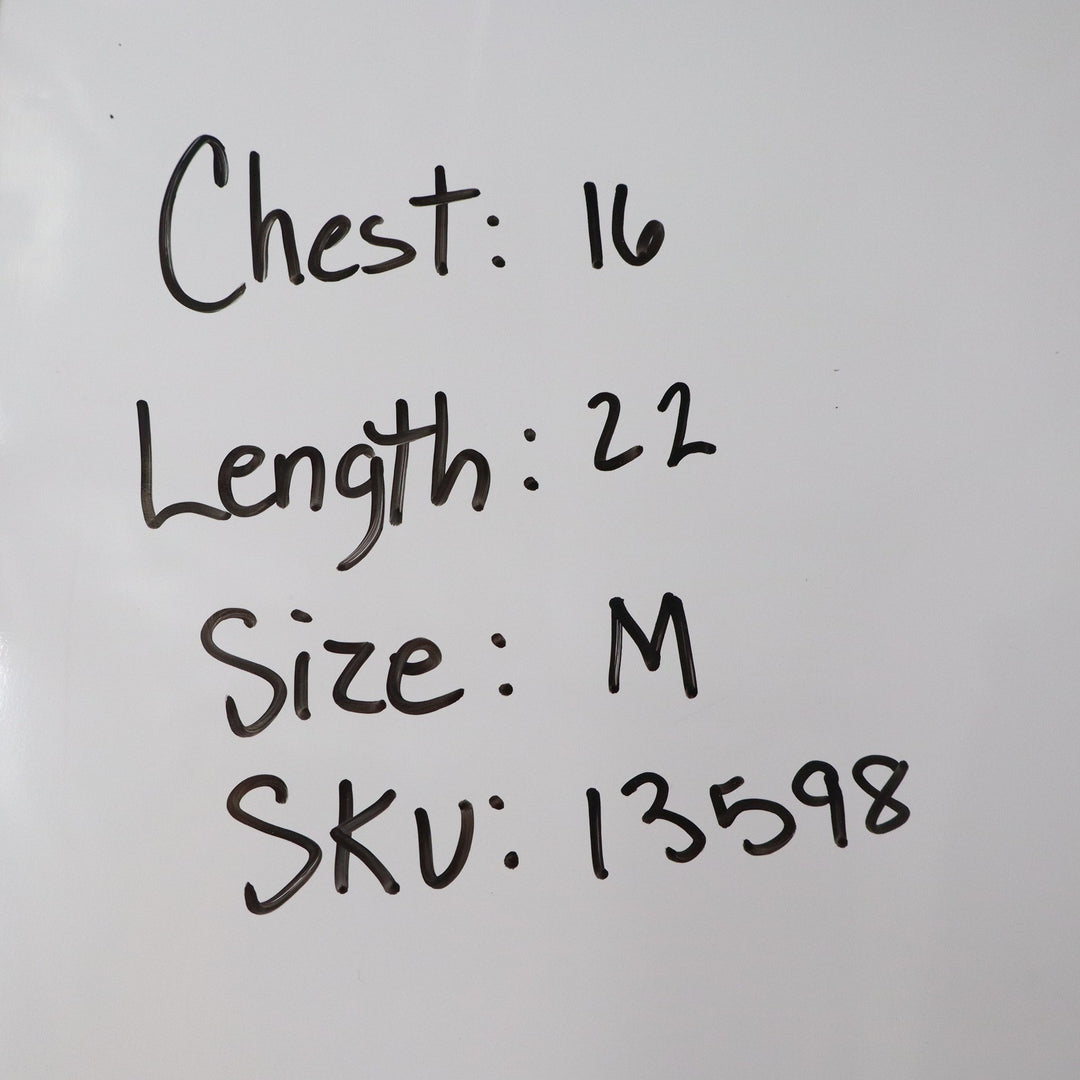 Chest: 16
Length: 22
Size: M
SKU: 13598